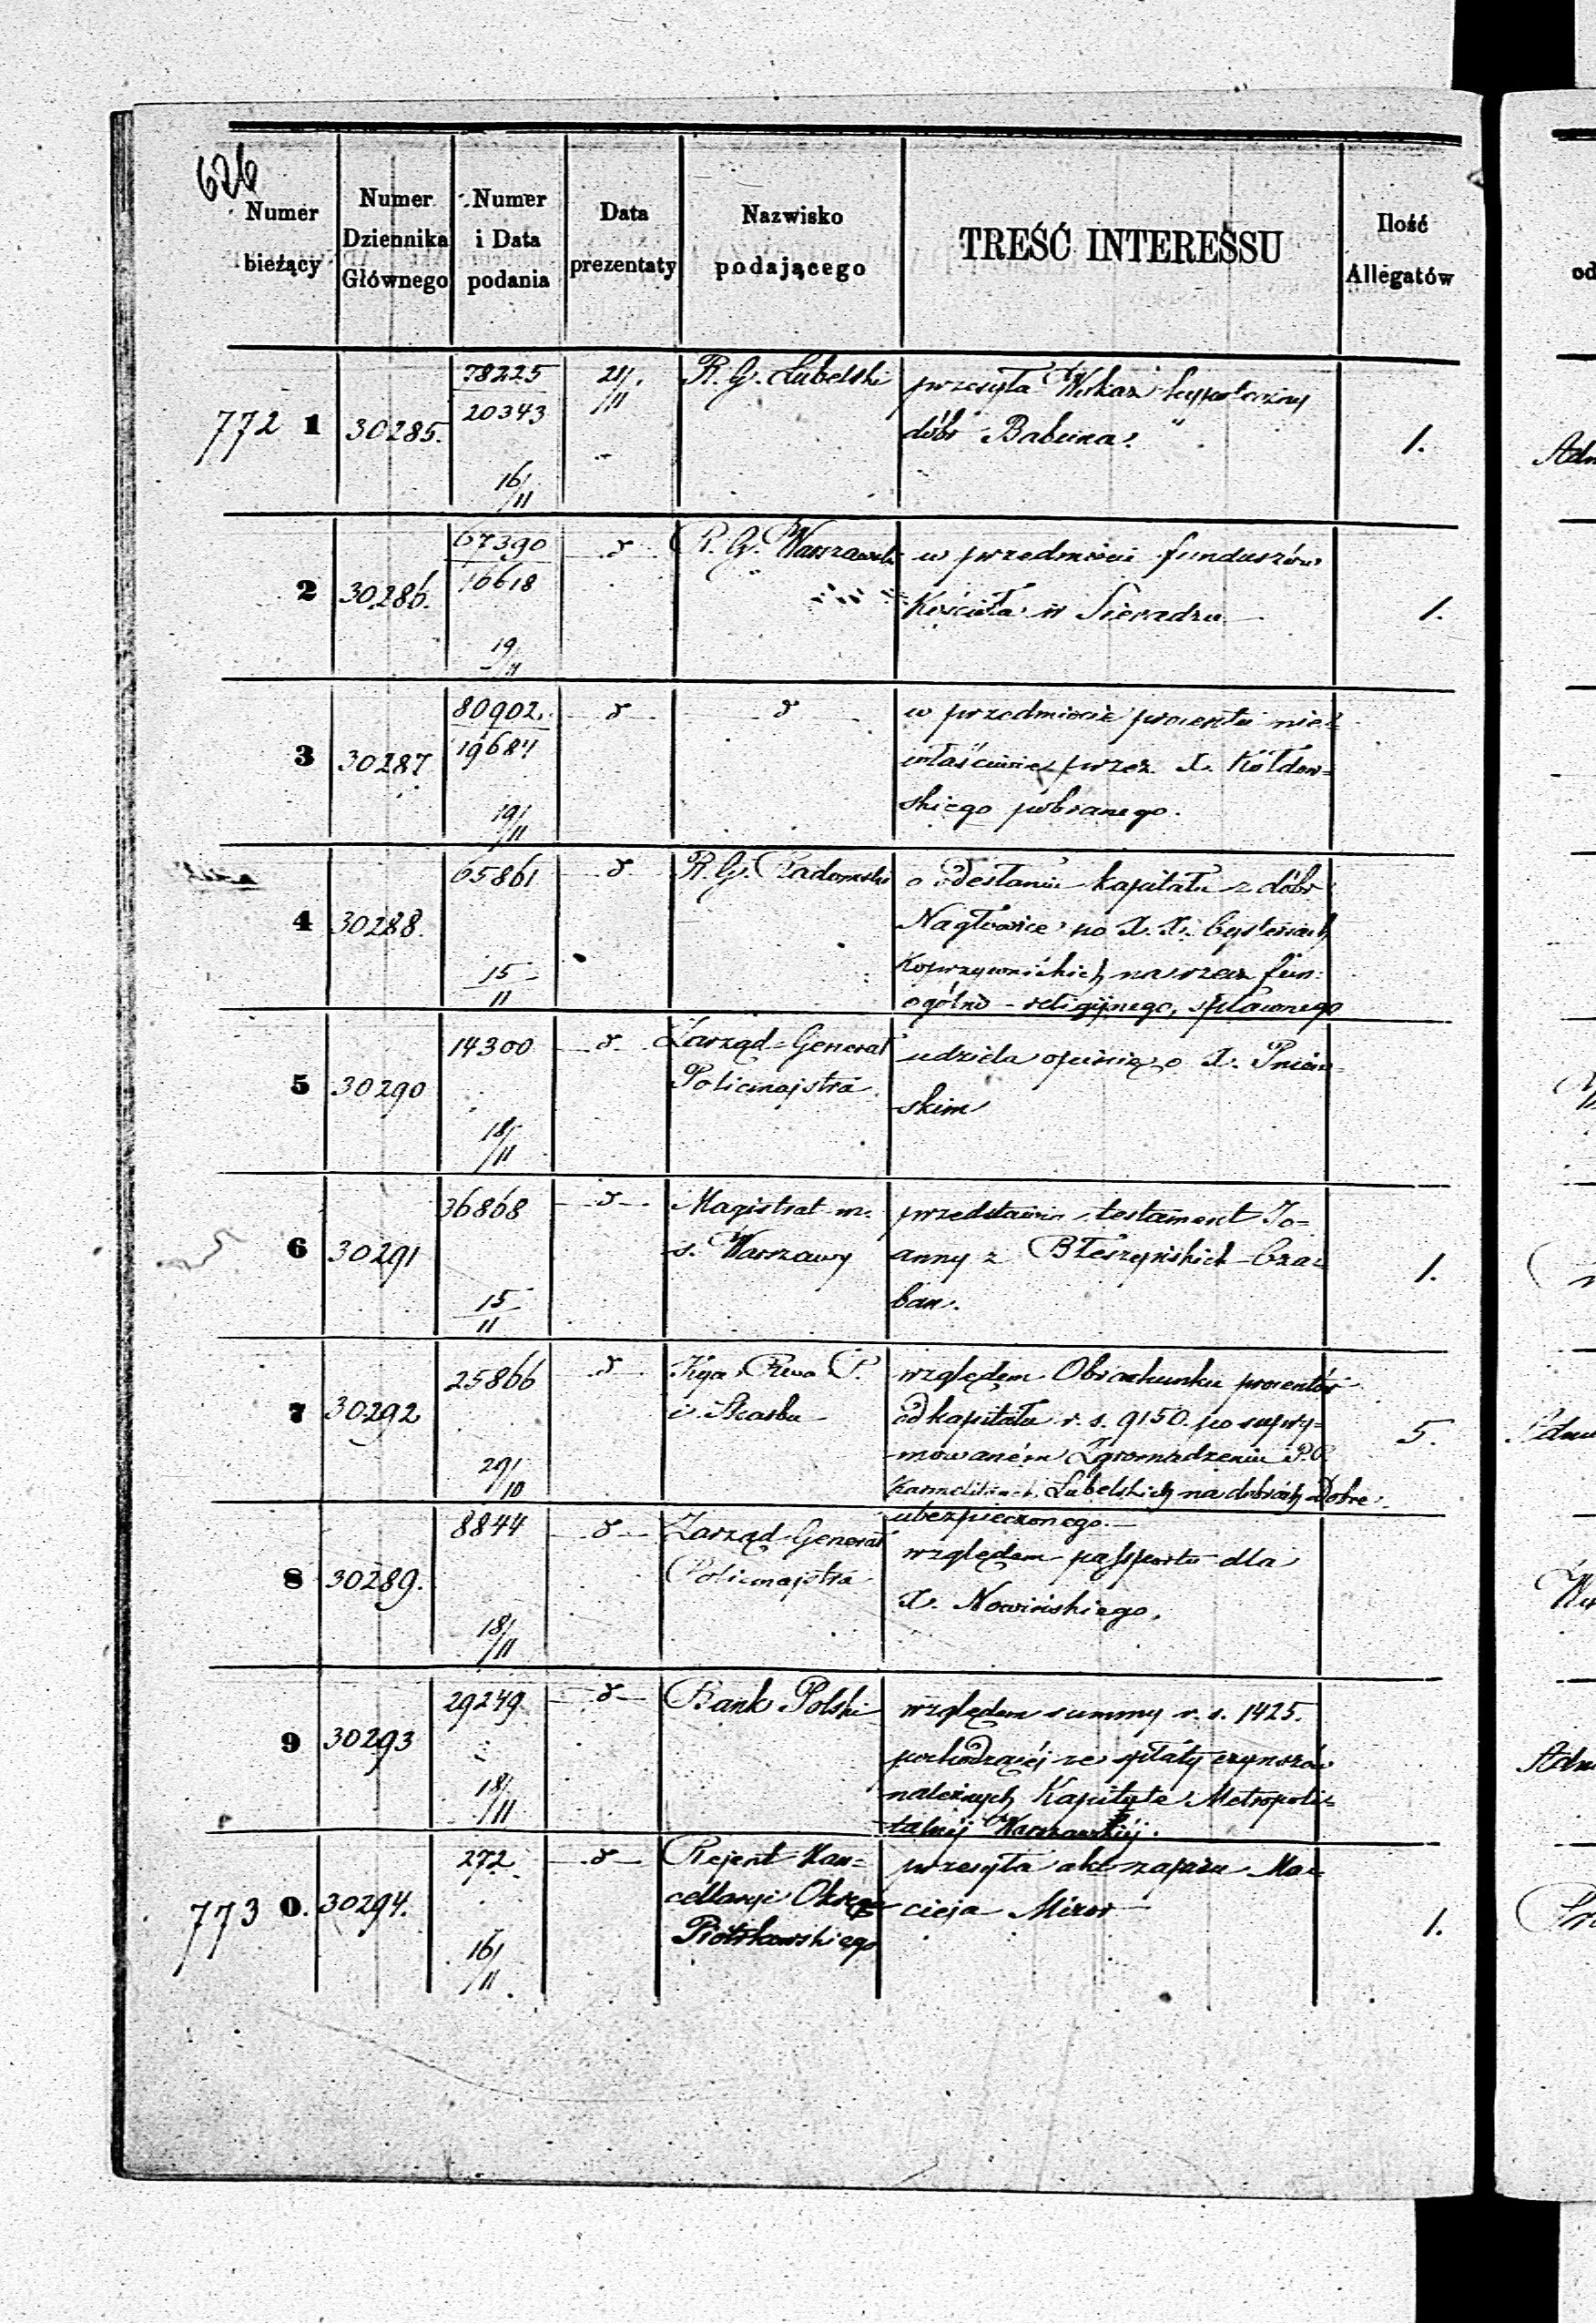 626
Numer bieżący
Numer Dziennika Głównego
Numer i Data podania
Data prezentaty
Nazwisko podającego
TREŚĆ INTERESSU
Ilość Allegatów
772 1
30285.
78225
20343
16/11
21/11
R. G. Lubelski
przesyła Wykaz hypoteczny
dóbr Babina.
1.
2
30286.
67390
16618
19/11
d
R. G. Warszawski
w przedmiocie funduszów
Kościoła w Sieradzu
1.
3
30287
80902.
19684
19/11
d
d
w przedmiocie procentu nie=
właściwie przez X. Kołdow=
skiego pobranego.
4
30288.
65861
15/11
d
R. G. Radomski
o odesłaniu kapitału z dóbr
Nagłowice po X. X. Cystersach
Koprzywnickich na rzecz fun:
ogólno-religijnego, spławnego
5
30290
14300
18/11
d
Zarząd-Generał
Policmajstra
udziela opinię o X. Pniew=
skim
6
30291
36868
15/11
d
Magistrat m.
s. Warszawy
przedstawia testament Jo=
anny z Błeszyńskich Cza=
ban.
1.
7
30292
25866
29/10
d
Kya Rwa P.
i Skarbu
względem Obrachunku procentów
od kapitału r. s. 9150. po supry=
mowaném Zgromadzeniu P.P.
Karmelitanek Lubelskich na dobrach Dobre
ubezpieczonego.
5.
8
30289.
8844
18/11
d
Zarząd-Generał
Policmajstra
względem passportu dla
X. Nowińskiego.
9
30293
29249
18/11
d
Bank Polski
względem summy r. s. 1425.
pochodzącéj ze spłaty czynszów
należnych Kapitule Metropoli=
talnéj Warszawskiéj.
773 0.
30294.
272
16/11
d
Rejent Kan=
cellaryi Okręgu
Piotrkowskiego
przesyła akt zapisu Ma=
cieja Mizor
1.